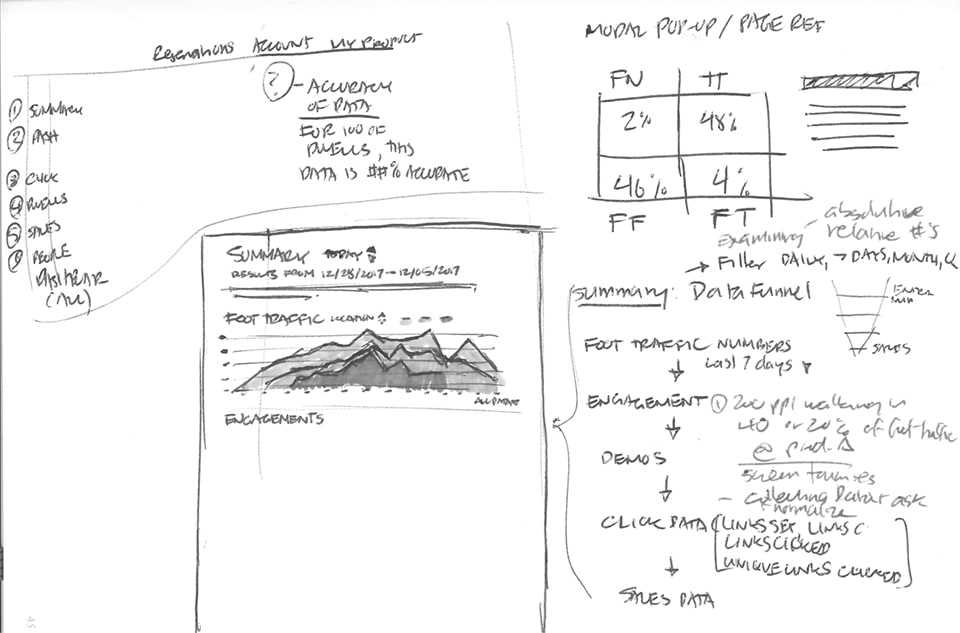 Reservations Account My Product
? - ACCURACY
OF DATA
FOR 100 OF
DATA IS ##% ACCURATE
① SUMMARY
② DASH
③ CLICK
④
⑤ SALES
⑥ PEOPLE
(ALL)
SUMMARY TODAY
RESULTS FROM 12/28/2017 - 12/05/2017
FOOT TRAFFIC LOCATION
ENGAGEMENTS
MODAL POP-UP / PAGE REF
FN TT
2% 48%
46% 4%
FF FT
Examining absolute
relative #'s
→ Filter DAILY, → DAYS, MONTH, Q
summary: Data Funnel
ENTER
SALES
FOOT TRAFFIC NUMBERS
Last 7 days
ENGAGEMENT ① 200 ppl walking in
40 or 20% of foot traffic
@
DEMOS
screen
- collecting Data + ask
+ normalize
CLICK DATA LINKS SET, LINKS C
LINKS CLICKED
UNIQUE LINKS CLICKED
SALES DATA